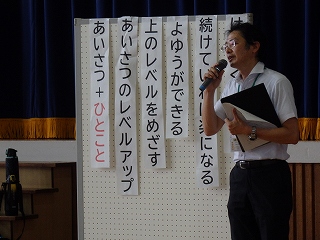 続けて
になる
よゆうができる
上のレベルをめざす
あいさつのレベルアップ
あいさつ＋ひとこと